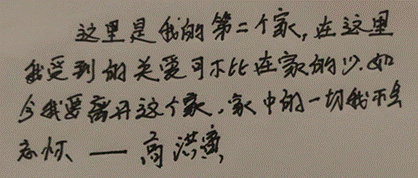 这里是我的第二个家,在这里
我受到的关爱可不比在家的少.如
今我要离开这个家.家中的一切我不会
忘怀 — 高洪